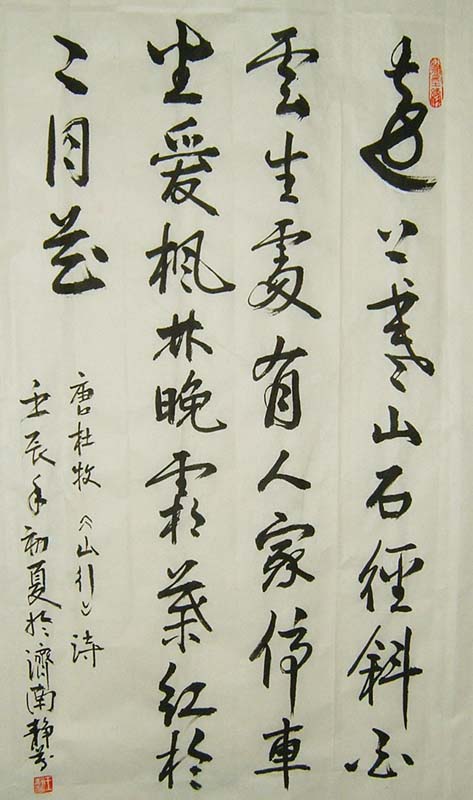 遠上寒山石徑斜白
雲生處有人家停車
坐愛楓林晚霜葉紅於
二月花
唐杜牧《山行》诗
壬辰年初夏於濟南静